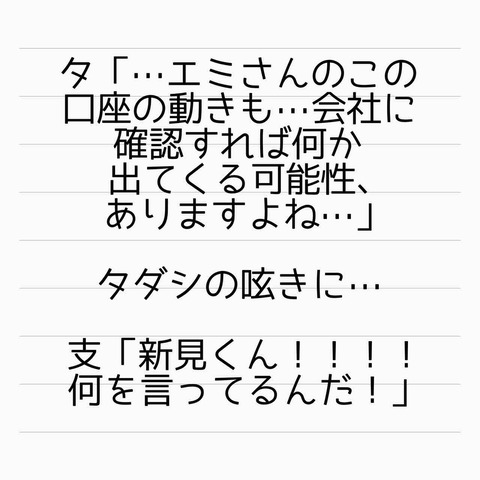 タ「…エミさんのこの
口座の動きも…会社に
確認すれば何か
出てくる可能性、
ありますよね…」
タダシの呟きに…
支「新見くん！！！！
何を言ってるんだ！」